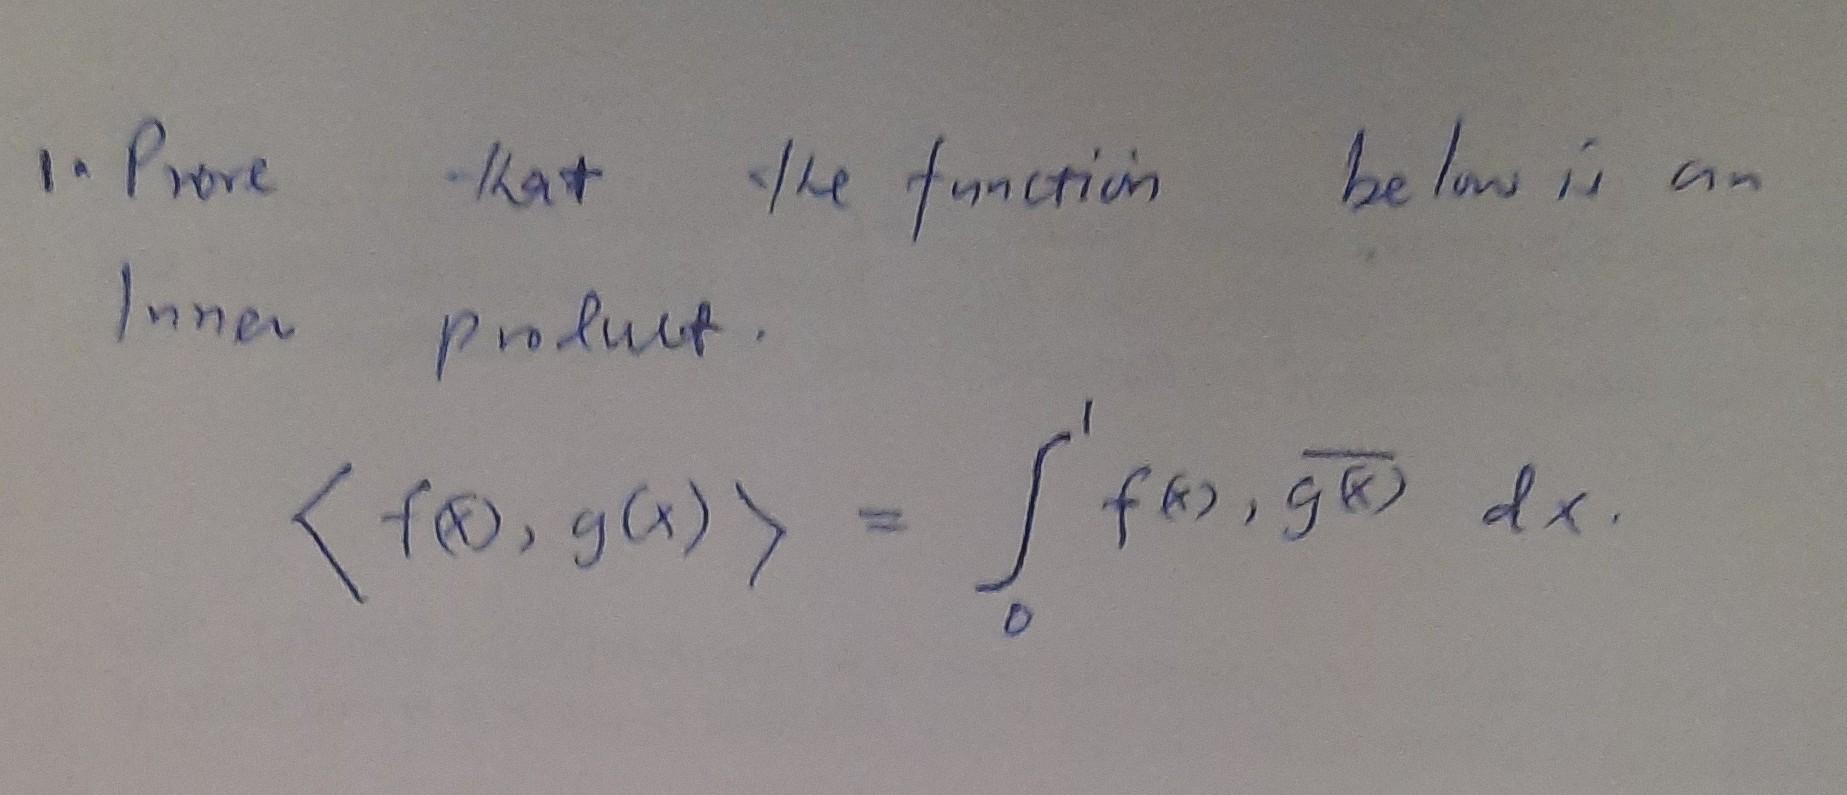 1. Prove that the function below is an
Inner product.
⟨f(x), g(x)⟩ = ∫₀¹ f(x), \overline{g(x)} dx.